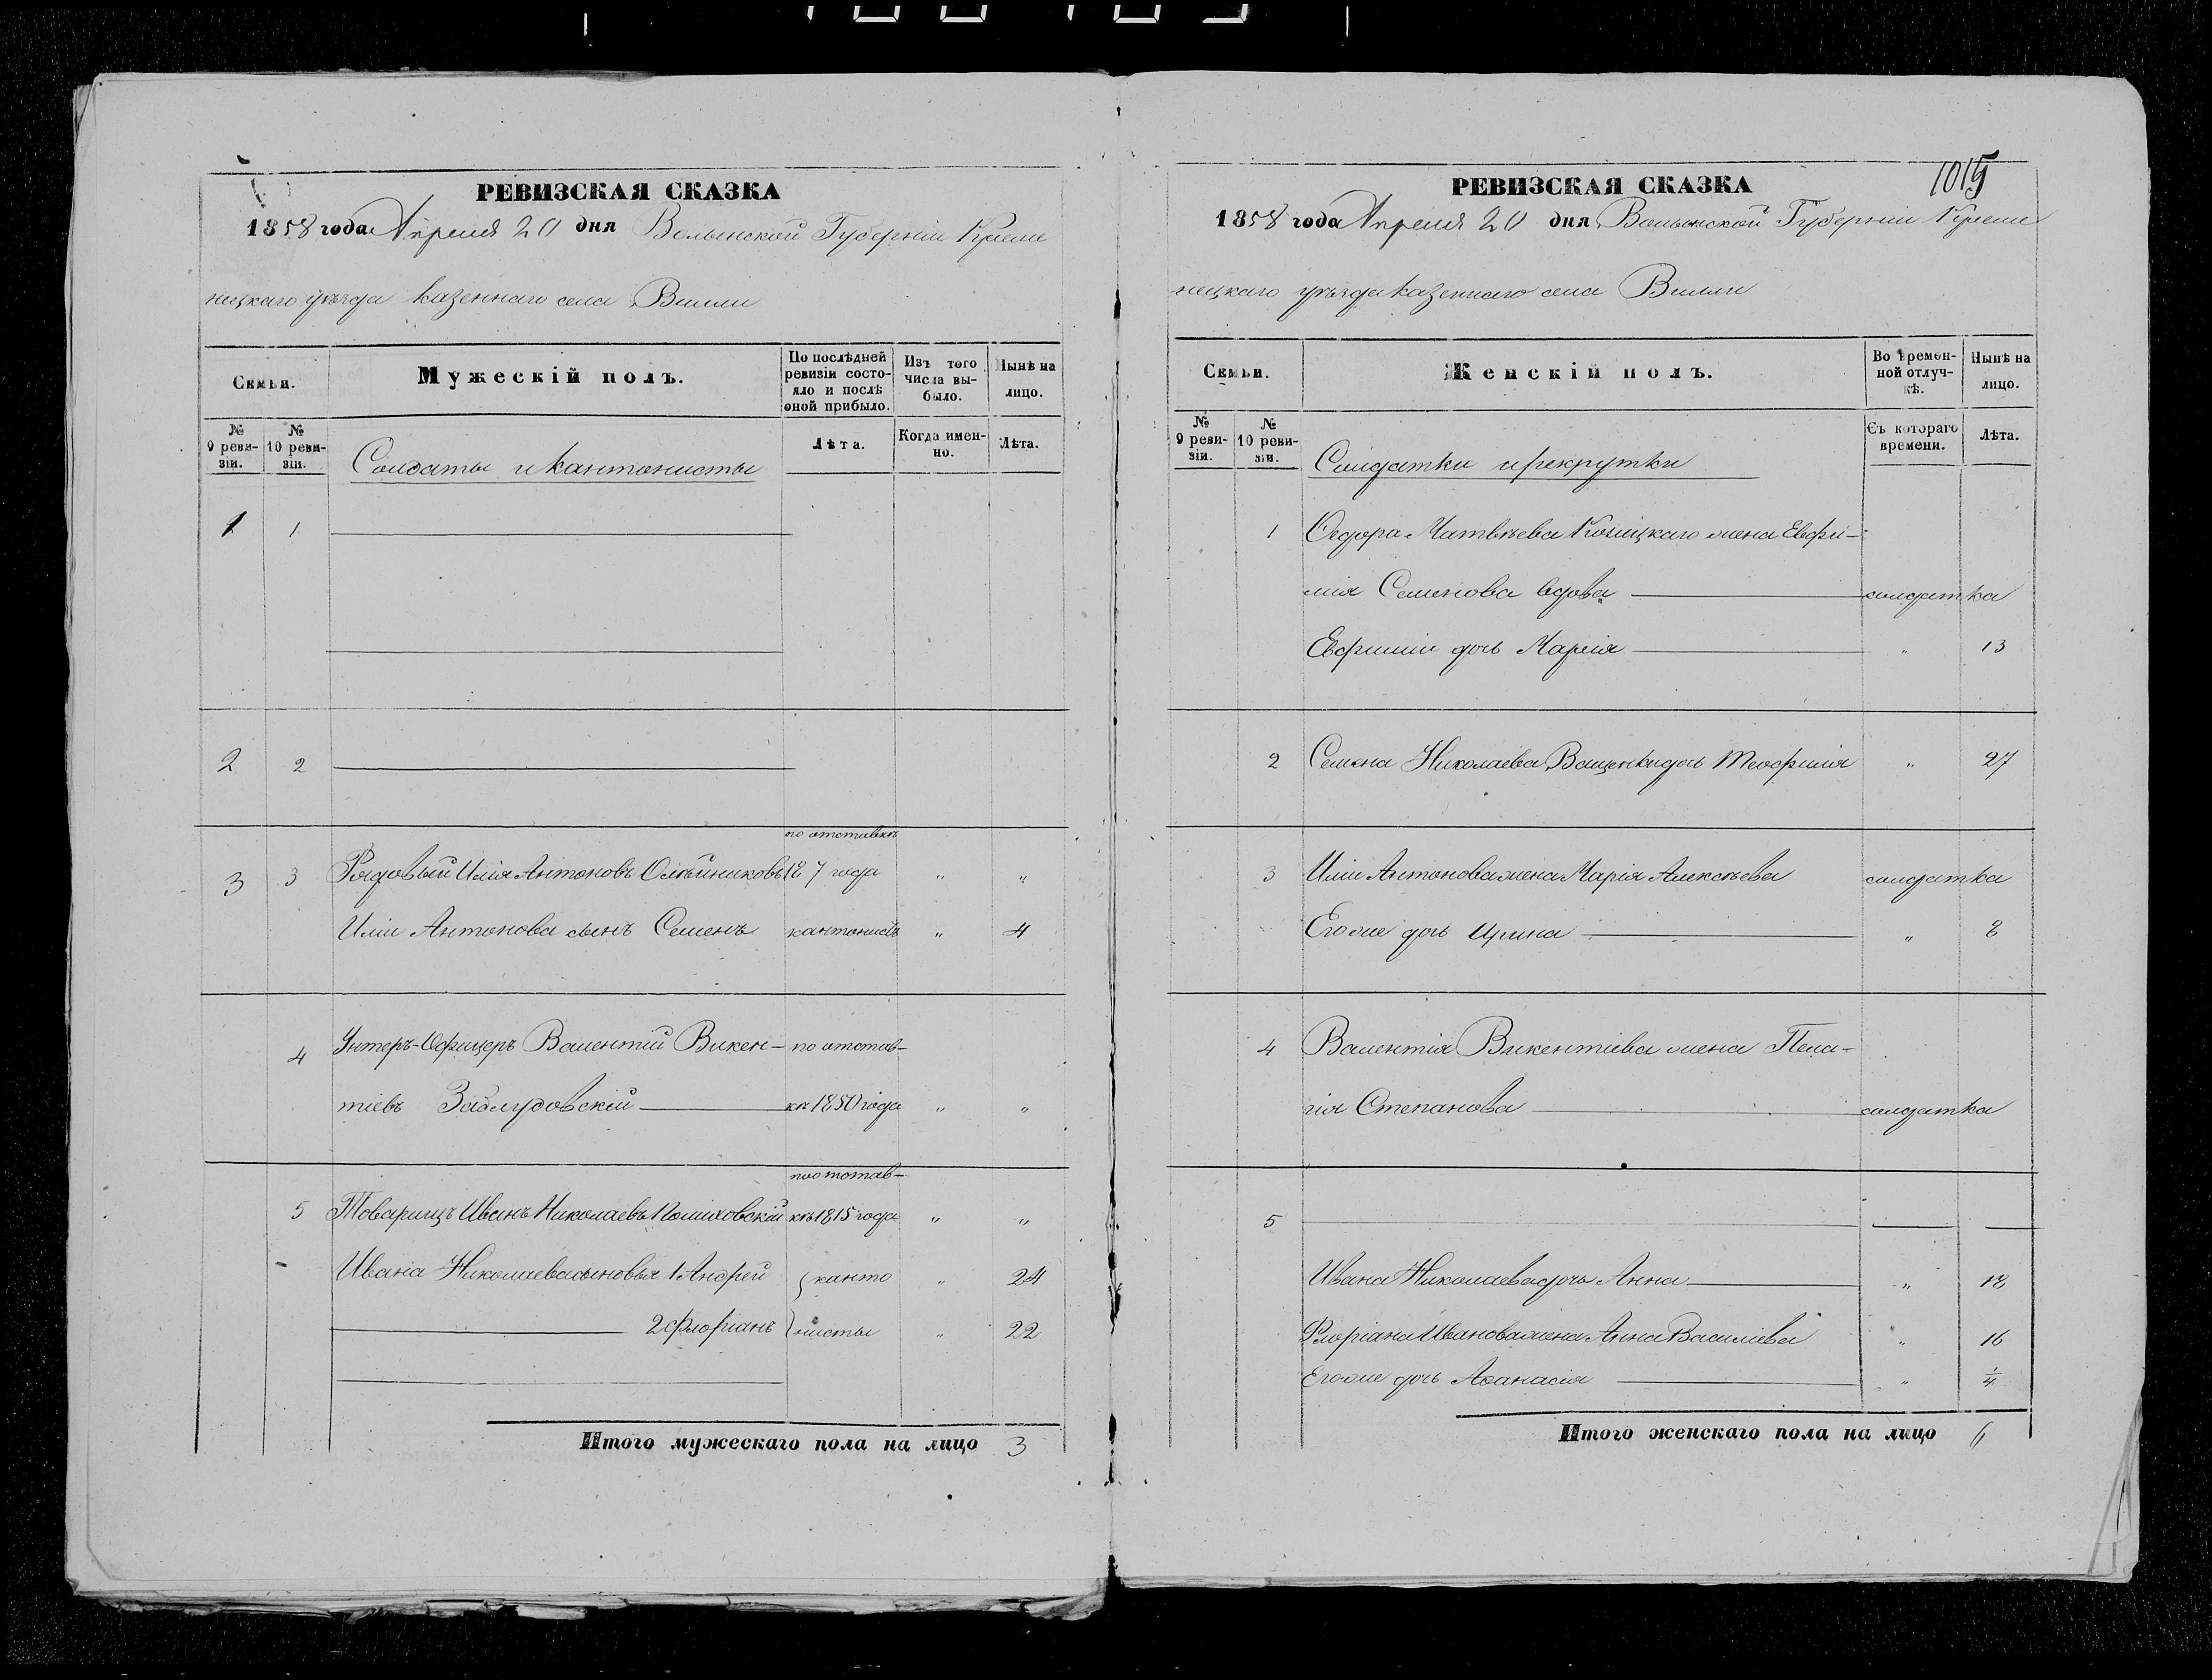 РЕВИЗСКАЯ СКАЗКА
1858 года Апреля 20 дня Волынской Губерніи Креме
нецкаго уѣзда казеннаго села Вилли
Семьи.
Мужескій полъ.
По послѣдней ревизіи состояло и послѣ оной прибыло.
Изъ того числа выбыло.
Нынѣ на лицо.
№ 9 ревизіи.
№ 10 ревизіи.
Лѣта.
Когда именно.
Лѣта.
Солдаты и кантонисты
1 1
2 2
по отставкѣ
3 3 Рядовый Илія Антоновъ Олѣйниковъ 18 7 года " "
Иліи Антонова сынъ Семенъ кантонистъ " 4
4 Унтеръ-Офицеръ Валентій Викен- по отстав-
тіевъ Заблудовскій кѣ 1850 года " "
по отстав-
5 Товарищъ Иванъ Николаевъ кѣ 1815 года " "
Ивана Николаева сыновья 1 Андрей } канто " 24
2 Флоріанъ } нисты " 22
Итого мужескаго пола на лицо 3
1015
РЕВИЗСКАЯ СКАЗКА
1858 года Апреля 20 дня Волынской Губерніи Креме
нецкаго уѣзда казеннаго села Вилли
Семьи.
Женскій полъ.
Во временной отлучкѣ.
Нынѣ на лицо.
№ 9 ревизіи.
№ 10 ревизіи.
Съ котораго времени.
Лѣта.
Солдатки и рекрутки
1 Федора Матвѣева Козицкаго жена Евфи-
мія Семенова вдова солдатка
Евфиміи дочь Марія " 13
2 Семена Николаева Ващенки дочь Теофилія " 27
3 Иліи Антонова жена Марія Алексѣева солдатка
Его же дочь Ирина " 8
4 Валентія Викентіева жена Пела-
гія Степанова солдатка
5
Ивана Николаева дочь Анна " 18
Флоріана Иванова жена Анна Василіева " 16
Его же дочь Афанасія " 1/4
Итого женскаго пола на лицо 6